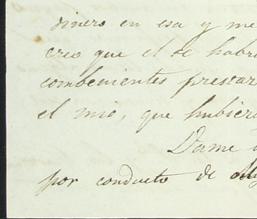 dinero en esa y me
creo que el se habr
combenientes prestar
el mio, que hubiera
Dame
por conducto de